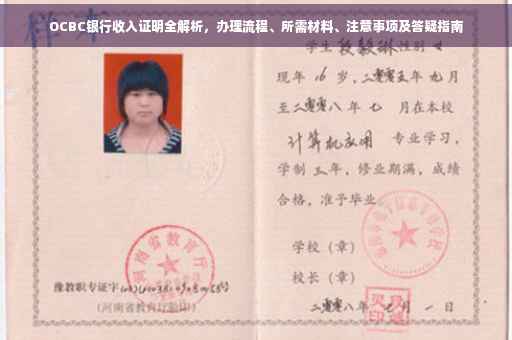 OCBC银行收入证明全解析，办理流程、所需材料、注意事项及答疑指南
样本
学生段毅琳性别女
现年 16 岁，二零零五年 九月
至二零零八年 七 月在本校
计算机应用 专业学习，
学制 三 年，修业期满，成绩
合格，准予毕业。
学校（章）
校长（章）
豫教职专证字
（河南省教育厅验印）
二零零八年 七 月 一 日
河南省教育厅